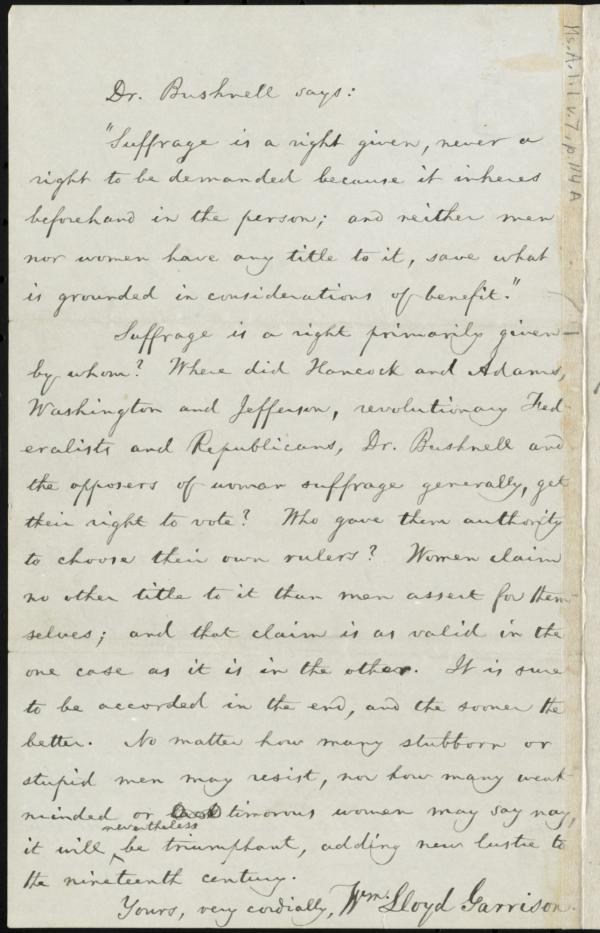 Dr. Bushnell says:
"Suffrage is a right given, never a
right to be demanded because it inheres
beforehand in the person; and neither men
nor women have any title to it, save what
is grounded in considerations of benefit."
Suffrage is a right primarily given
by whom? Where did Hancock and Adams,
Washington and Jefferson, revolutionary Fed-
eralists and Republicans, Dr. Bushnell and
the opposers of woman suffrage generally, get
their right to vote? Who gave them authority
to choose their own rulers? Women claim
no other title to it than men assert for them-
selves; and that claim is as valid in the
one case as it is in the other. It is sure
to be accorded in the end, and the sooner the
better. No matter how many stubborn or
stupid men may resist, nor how many weak-
minded or timorous women may say nay,
it will nevertheless be triumphant, adding new lustre to
the nineteenth century.
Yours, very cordially, Wm. Lloyd Garrison.
Ms.A.1.1 v.7, p.114A